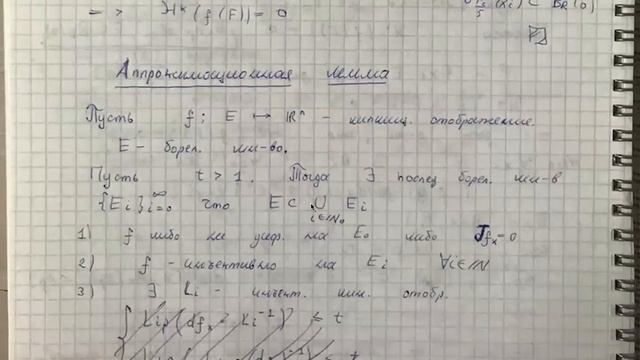 => ℋᵏ(f(F)) = 0
(xᵢ) ⊂ B_R(0)
Аппроксимационная лемма
Пусть f: E ↦ ℝⁿ - липшиц. отображение.
E - борел. мн-во.
Пусть t > 1. Тогда ∃ послед. борел. мн-в
{Eᵢ}ᵢ₌₀^∞ что E ⊂ ∪_{i∈ℕ₀} Eᵢ
1) f либо не диф. на E₀ либо Jfₓ = 0
2) f - инъективно на Eᵢ ∀i∈ℕ
3) ∃ Lᵢ - инъект. лин. отобр.
{ Lip(dfₓ ∘ Lᵢ⁻¹) ≤ t
⁻¹) ≤ t